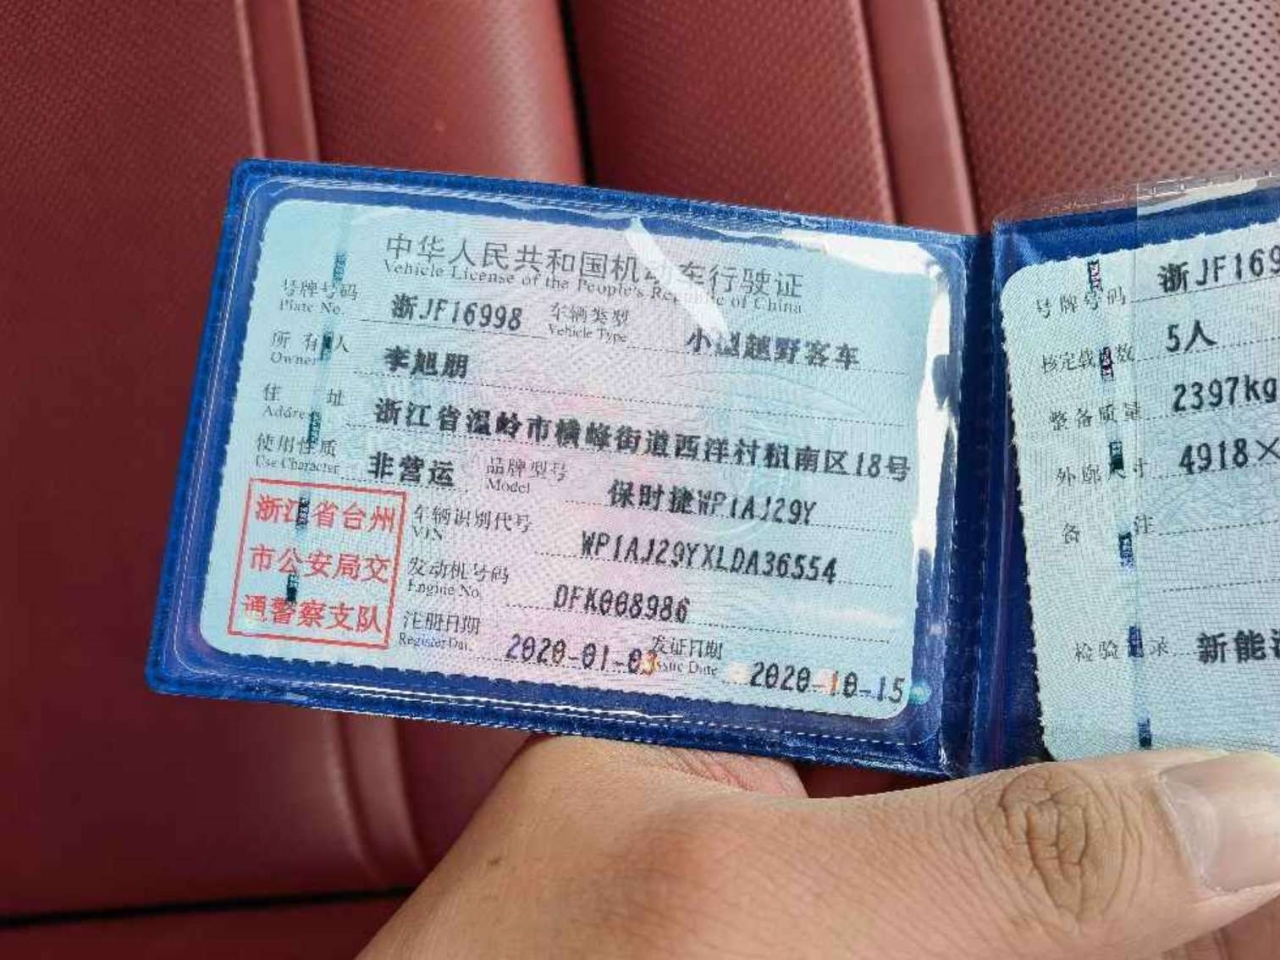 中华人民共和国机动车行驶证
Vehicle License of the People's Republic of China
号牌号码 浙JF16998 车辆类型 小型越野客车
Plate No. Vehicle Type
所有人 李旭朋
Owner
住址 浙江省温岭市横峰街道西洋村租南区18号
Address
使用性质 非营运 品牌型号 保时捷WP1AJ29Y
Use Character Model
浙江省台州
市公安局交
通警察支队
车辆识别代号 WP1AJ29YXLDA36554
VIN
发动机号码 DFK008986
Engine No.
注册日期 2020-01-03 发证日期 2020-10-15
Register Date Issue Date
号牌号码 浙JF169
核定载人数 5人
整备质量 2397kg
外廓尺寸 4918×
备注
检验记录 新能